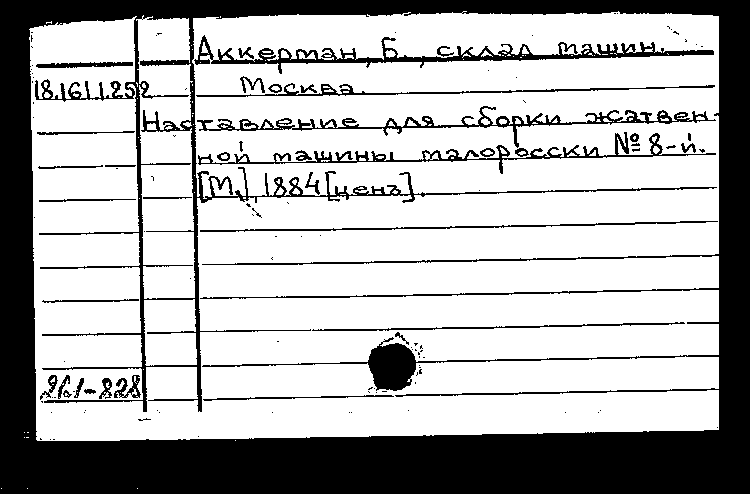 Аккерман, Б., склад машин.
18.161.1.252
Москва.
Наставление для сборки жатвен-
ной машины малоросски № 8-й.
[М.], 1884 [ценз].
261-828